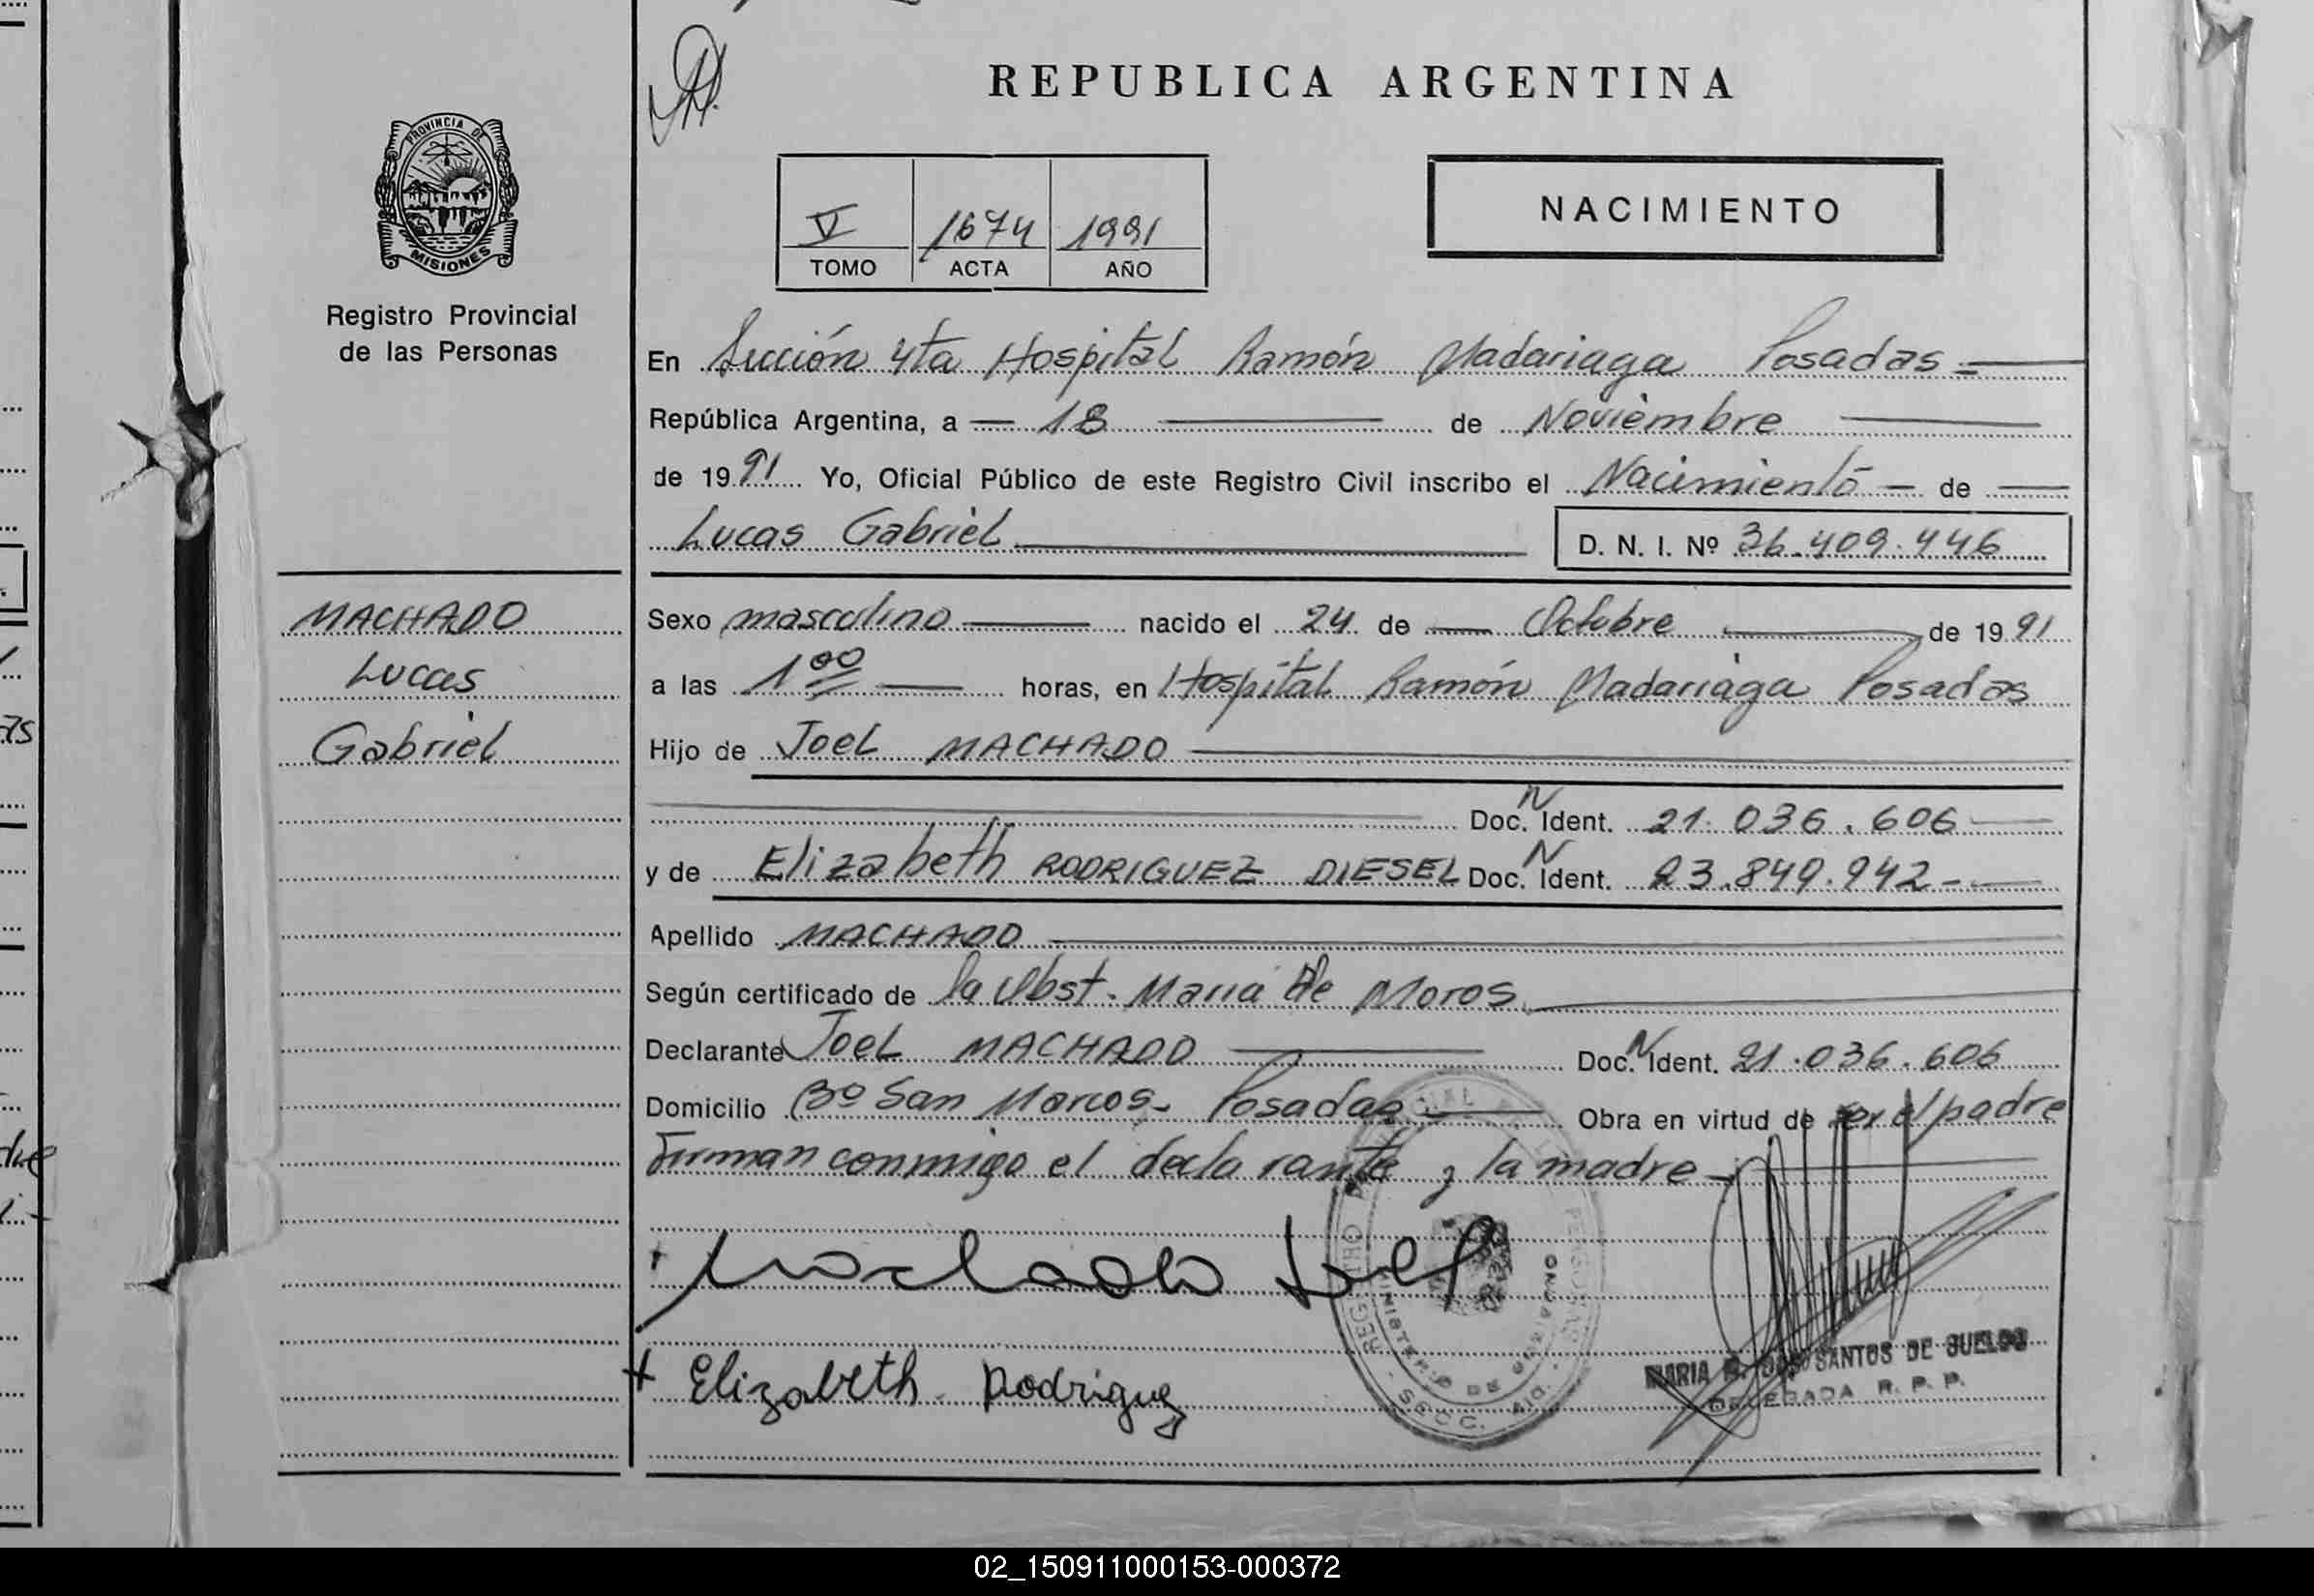 REPUBLICA ARGENTINA
PROVINCIA DE
MISIONES
Registro Provincial
de las Personas
V 1674 1991
TOMO ACTA AÑO
NACIMIENTO
En Sección 4ta Hospital Ramón Madariaga Posadas
República Argentina, a 18 de Noviembre
de 1991 Yo, Oficial Público de este Registro Civil inscribo el Nacimiento de
Lucas Gabriel D. N. I. Nº 36.409.446
MACHADO
Lucas
Gabriel
Sexo masculino nacido el 24 de Octubre de 1991
a las 1 00 horas, en Hospital Ramón Madariaga Posadas
Hijo de Joel MACHADO
Doc. N Ident. 21.036.606
y de Elizabeth RODRIGUEZ DIESEL Doc. N Ident. 23.849.942
Apellido MACHADO
Según certificado de la Obst. Maria de Moros
Declarante Joel MACHADO Doc. N Ident. 21.036.606
Domicilio Bº San Marcos - Posadas Obra en virtud de ser el padre
Firman conmigo el declarante y la madre
Machado Joel
Elizabeth Rodriguez
REGISTRO PERSONAS
MINISTERIO DE GOBIERNO
SECC. 4ta.
MARIA SANTOS DE SUELDO
DELEGADA R. P. P.
02_150911000153-000372